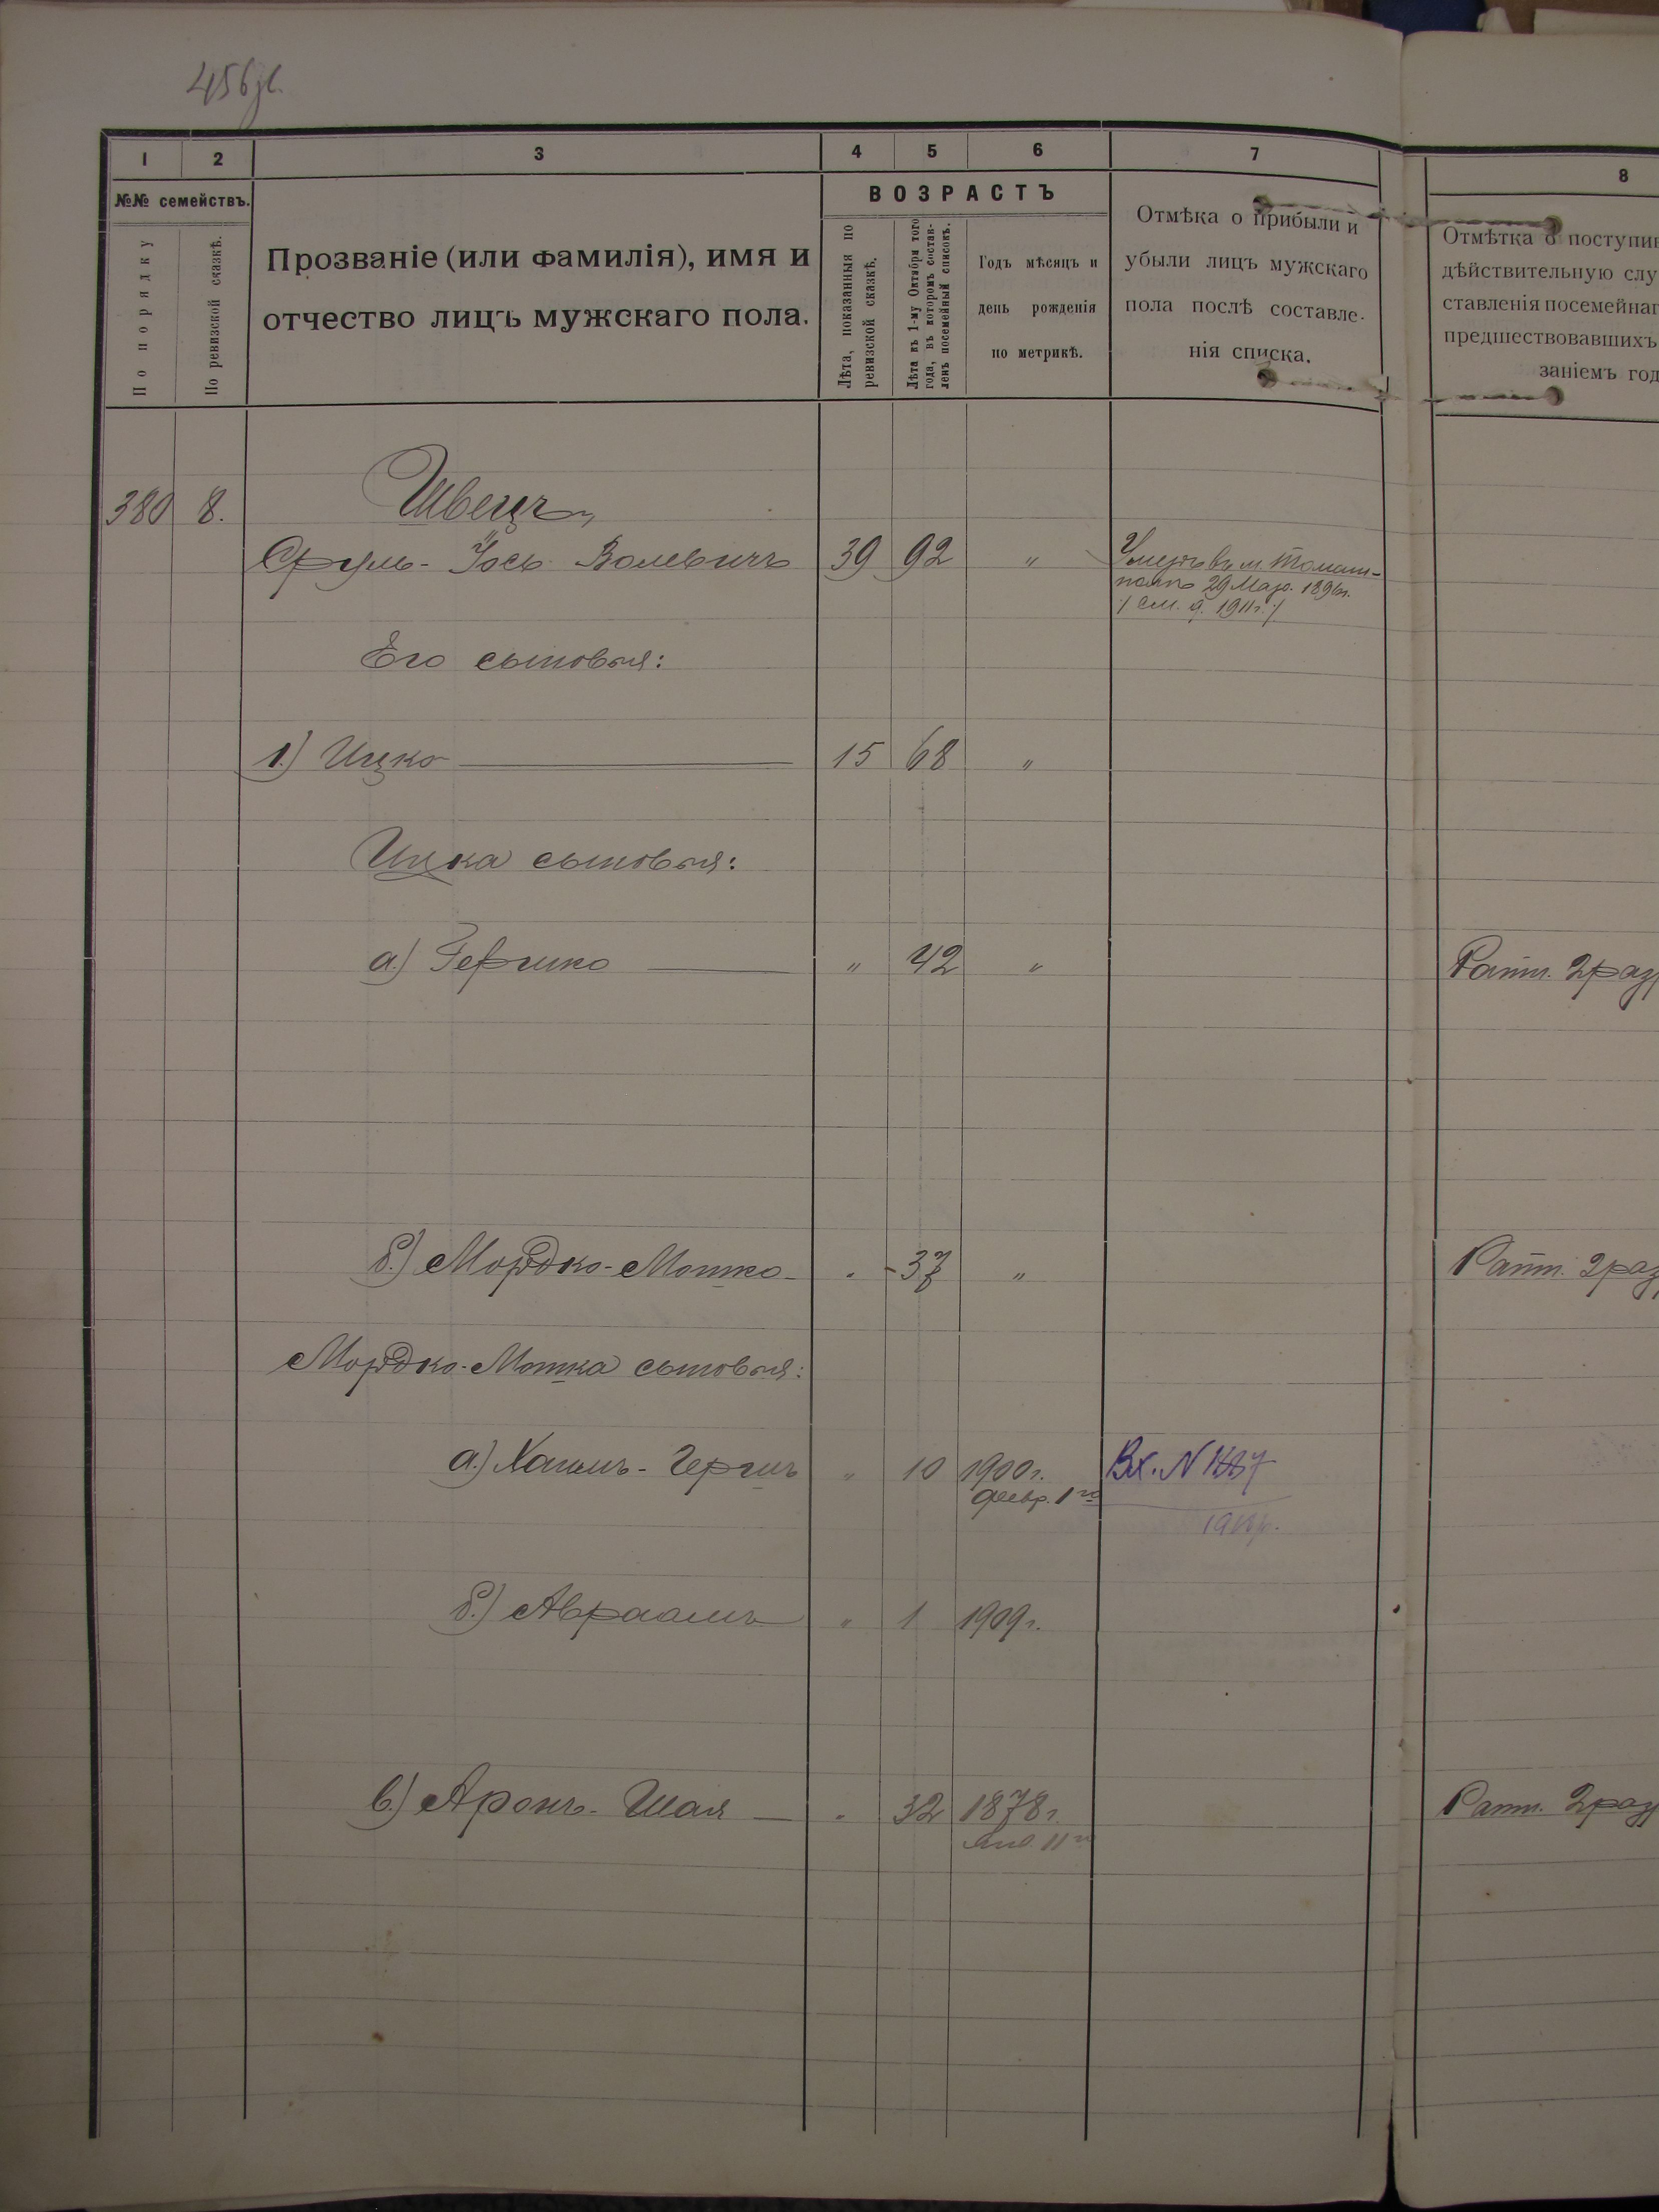 456
1 2 3 4 5 6 7 8
№№ семействъ.
По порядку
По ревизской сказкѣ.
Прозваніе (или фамилія), имя и
отчество лицъ мужскаго пола.
ВОЗРАСТЪ
Лѣта, показанныя по
ревизской сказкѣ.
Лѣта къ 1-му Октября того
года, въ которомъ состав-
ленъ посемейный списокъ.
Годъ мѣсяцъ и
день рожденія
по метрикѣ.
Отмѣка о прибыли и
убыли лицъ мужскаго
пола послѣ составле-
нія списка.
Отмѣтка о поступи
дѣйствительную слу
ставленія посемейнаг
предшествовавшихъ
заніемъ год
380 8. Швецъ,
Сруль-Іось Волевичъ 39 92 "
Умеръ въ м. Томаш-
полѣ 29 Мар. 1896 г.
/ см. д. 1911 г. /
Его сыновья:
1.) Ицко 15 68 "
Ицка сыновья:
а.) Гершко " 42 " Ратн. 2 разр
б.) Мордко-Мошко - " 37 " Ратн. 2 раз
Мордко-Мошка сыновья:
а.) Хаимъ-Гершъ " 10 1900 г. Вх. N
Февр. 1го
б.) Авраамъ " 1 1909 г.
в.) Аронъ-Шая — " 32 1878 г. Ратн. 2 разр
Янв. 11го